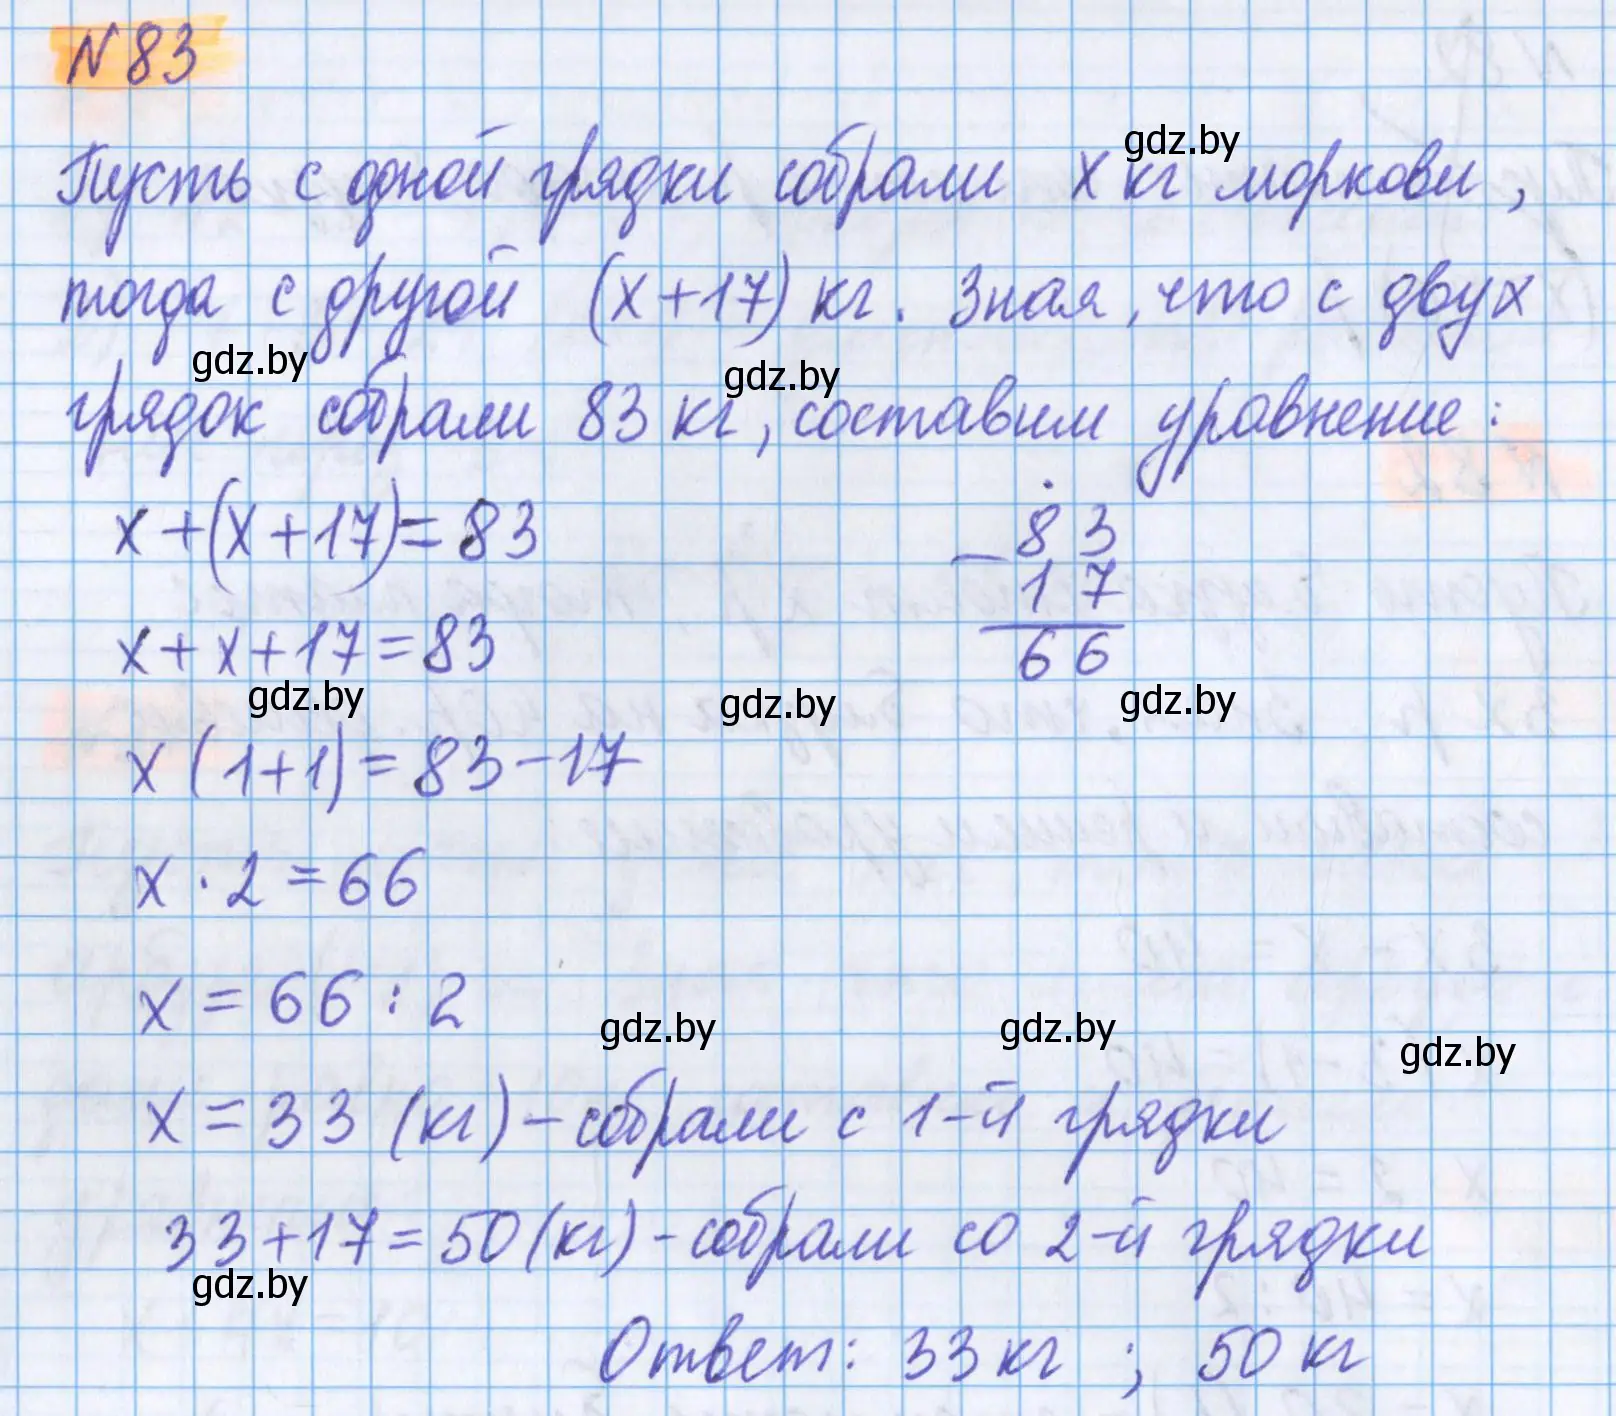 N 83
gdz.by
Пусть с одной грядки собрали x кг моркови,
тогда с другой (x+17) кг. Зная, что с двух
gdz.by gdz.by
грядок собрали 83 кг, составим уравнение:
x+(x+17)=83
x+x+17=83
83
− 17
66
gdz.by gdz.by gdz.by
x(1+1)=83−17
x · 2 = 66
x = 66 : 2
gdz.by gdz.by gdz.by
x = 33 (кг) – собрали с 1-й грядки
33+17=50 (кг) – собрали со 2-й грядки
gdz.by
Ответ: 33 кг ; 50 кг